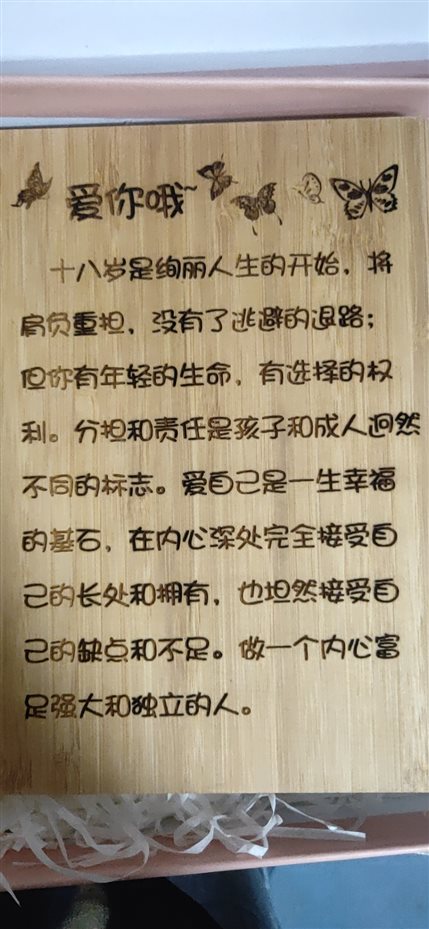 爱你哦~
十八岁是绚丽人生的开始，将
肩负重担，没有了逃避的退路；
但你有年轻的生命，有选择的权
利。分担和责任是孩子和成人迥然
不同的标志。爱自己是一生幸福
的基石，在内心深处完全接受自
己的长处和拥有，也坦然接受自
己的缺点和不足。做一个内心富
足强大和独立的人。